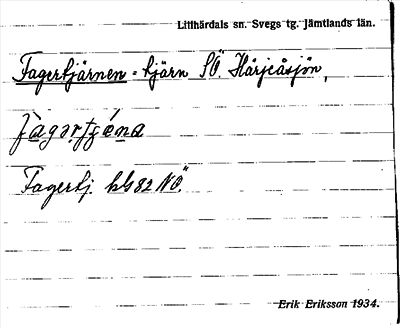 Lillhärdals sn. Svegs tg. Jämtlands län.
Fagertjärnen - tjärn SÖ. Härjeåsjön,
Fagertj. bl. 82 NÖ.
Erik Eriksson 1934.